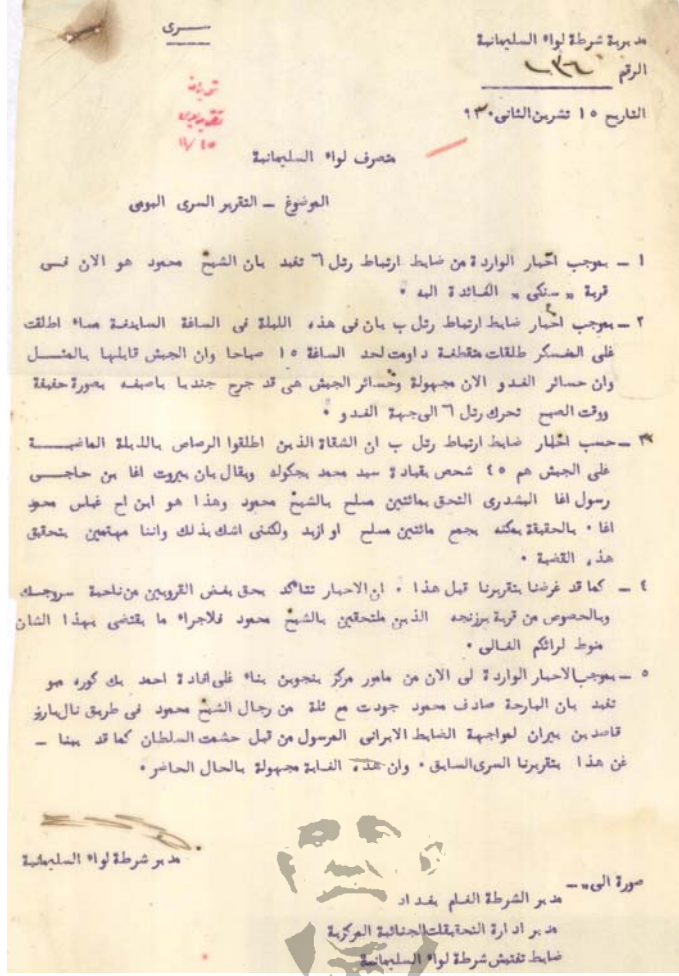 سرى
مديرية شرطة لواء السليمانية
الرقم
التاريخ ١٥ تشرين الثانى ٩٣٠
متصرف لواء السليمانية
الموضوع ــ التقرير السرى اليومى
١ ــ بموجب اخبار الواردة من ضابط ارتباط رتل ٦ تفيد بان الشيخ محمود هو الان فى
قرية „ سنكى „ العائدة اليه ٠
٢ ــ بموجب اخبار ضابط ارتباط رتل ب بان فى هذه الليلة فى الساعة السابعة مساء اطلقت
على العسكر طلقات متقطعة داومت لحد الساعة ١٥ صباحا وان الجيش قابلها بالمثل
وان خسائر العدو الان مجهولة وخسائر الجيش هى قد جرح جنديا باصبعه بصورة خفيفة
ووقت الصبح تحرك رتل ٦ الى جهة العدو ٠
٣ ــ حسب اخبار ضابط ارتباط رتل ب ان الشقاة الذين اطلقوا الرصاص بالليلة الماضية
على الجيش هم ٤٥ شخص بقيادة سيد محمد بجكوله ويقال بان بيروت اغا بن حاجى
رسول اغا البشدرى التحق بمائتين مسلح بالشيخ محمود وهذا هو ابن اخ عباس محمود
اغا ٠ بالحقيقة يمكنه بجمع مائتين مسلح او ازيد ولكننى اشك بذلك واننا مهتمين بتحقيق
هذه القضية ٠
٤ ــ كما قد عرضنا بتقريرنا قبل هذا ٠ ان الاخبار تتاكد بحق بعض القرويين من ناحية سروجك
وبالخصوص من قرية برزنجه الذين ملتحقين بالشيخ محمود فلاجراء ما يقتضى بهذا الشان
منوط لرائكم العالى ٠
٥ ــ بموجب الاخبار الواردة لى الان من مامور مركز بنجوين بناء على افادة احمد بك كوره مو
تفيد بان البارحة صادف محمود جودت مع ثلة من رجال الشيخ محمود فى طريق نال باريز
قاصدين بيران لمواجهة الضابط الايرانى المرسول من قبل حشمت السلطان كما قد بينا ــ
عن هذا بتقريرنا السرى السابق ٠ وان هذه الغاية مجهولة بالحال الحاضر ٠
مدير شرطة لواء السليمانية
صورة الى ــ
مدير الشرطة العام بغداد
مدير ادارة التحقيقات الجنائية المركزية
ضابط تفتيش شرطة لواء السليمانية